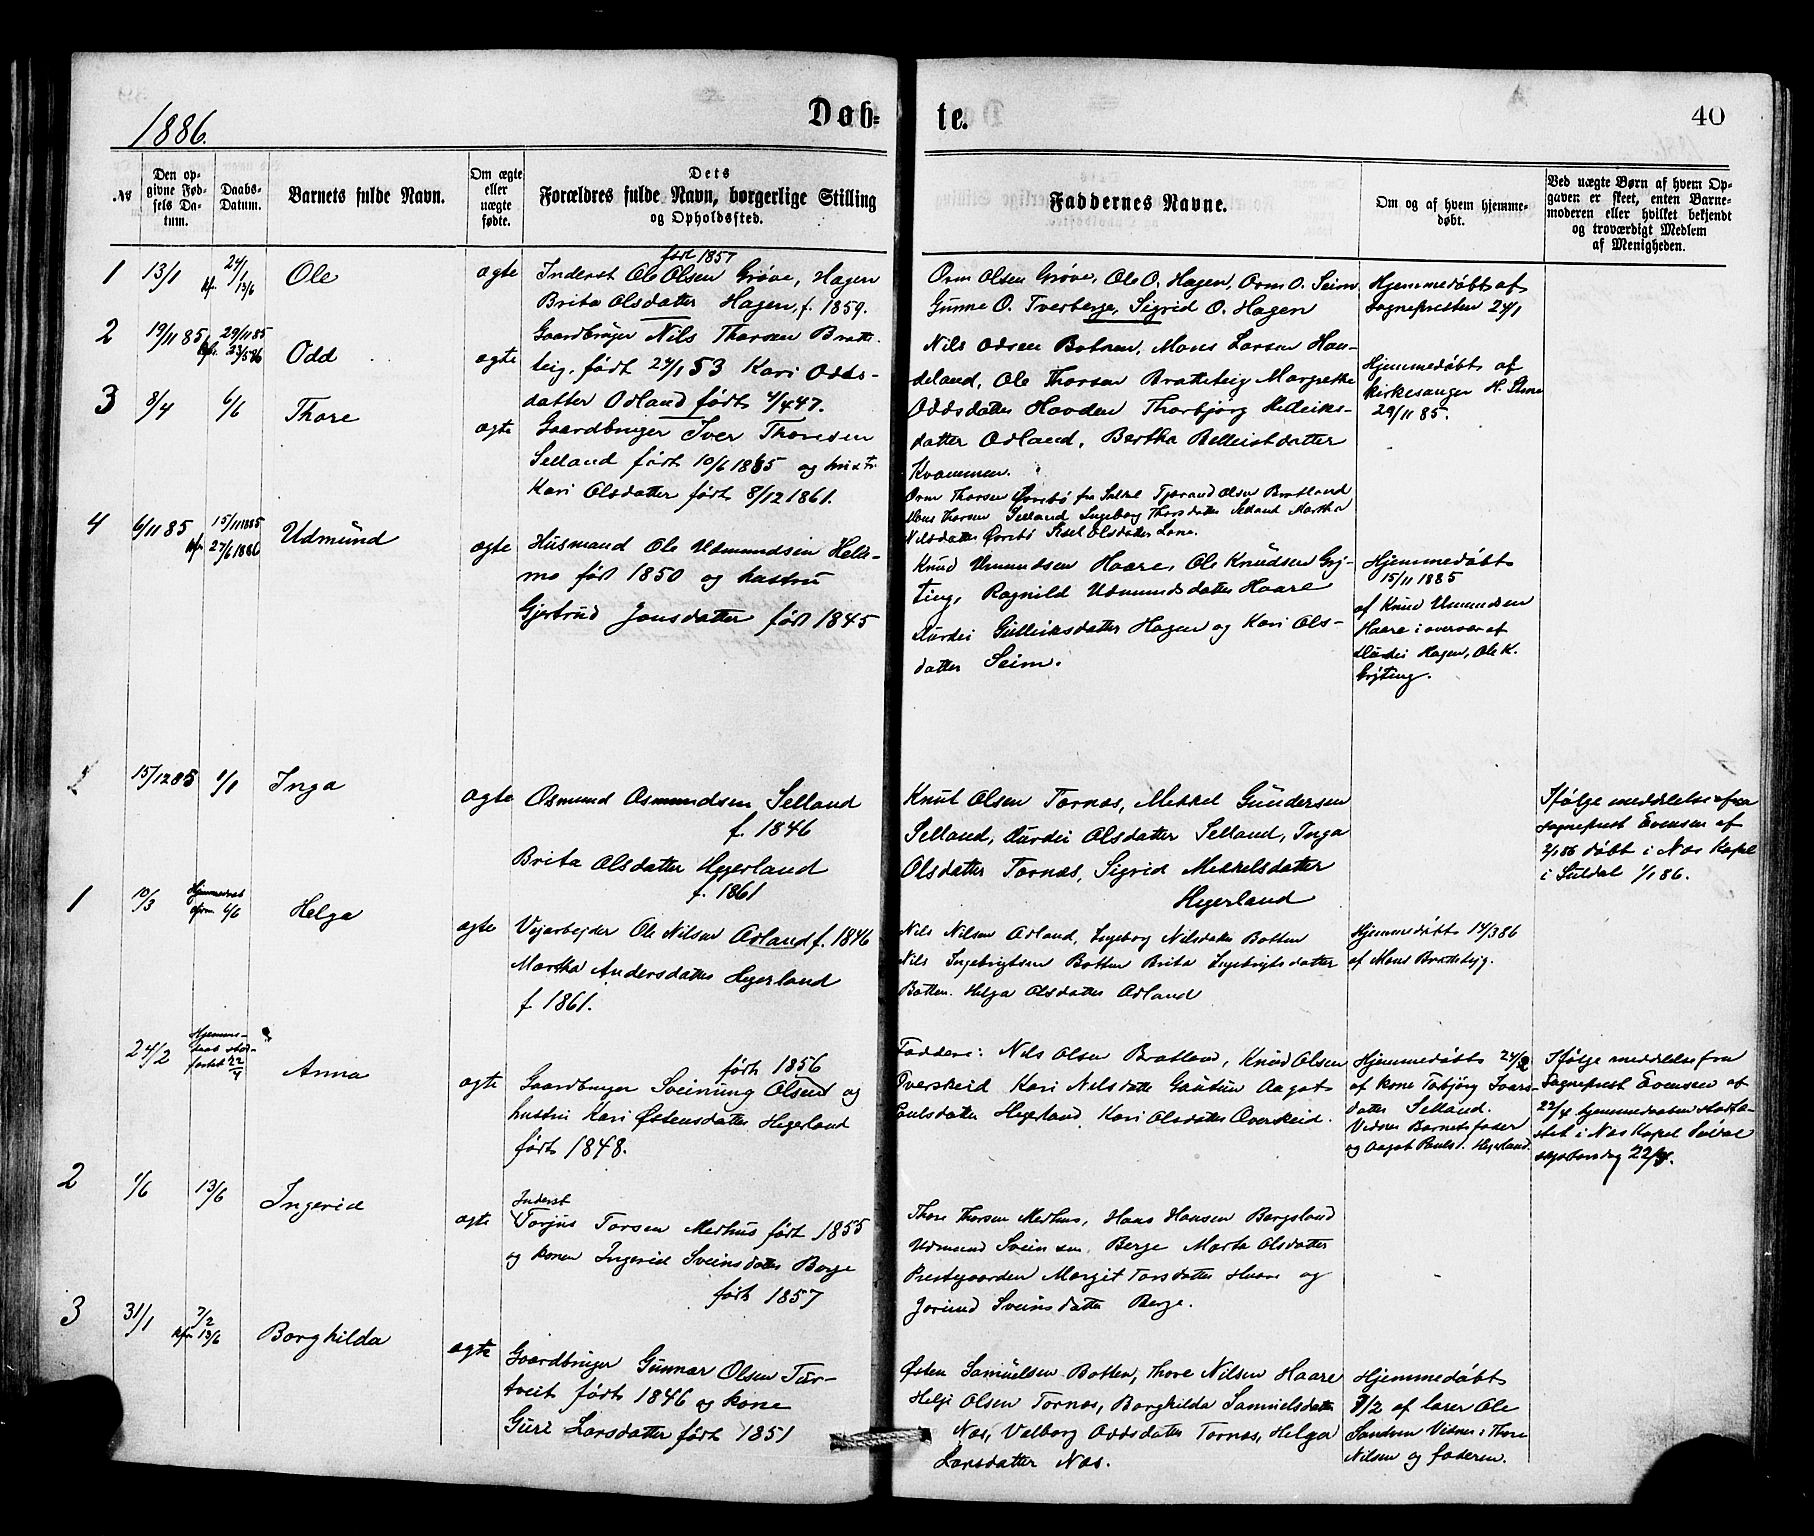 1886.
Døb-
te.
40
No
Den op-
givne Fød-
sels Da-
tum.
Daabs-
Datum.
Barnets fulde Navn.
Om ægte
eller
uægte
fødte.
Dets
Forældres fulde Navn, borgerlige Stilling
og Opholdssted.
Faddernes Navne.
Om og af hvem hjemme-
døbt.
Ved uægte Børn af hvem Op-
gaven er skeet, enten Barne-
moderen eller hvilket bekjendt
og troværdigt Medlem
af Menigheden.
1
13/1
24/1
Kfr. 13/6
Ole
ægte
født 1857
Inderst Ole Olsen Grøve, Hagen
Brita Olsdatter Hagen, f. 1859.
Orm Olsen Grøve, Ole O. Hagen, Orm O. Seim
Gunne O. Tverberge, Sigrid O. Hagen
Hjemmedøbt af
Sognepresten 24/1
2
19/11 85
29/11 85
Kfr. 23/5 86
Odd
ægte
Gaardbruger Nils Thorsen Bratte-
teig, født 24/1 53 Kari Odds-
datter Ørland født 4/4 47.
Nils Odsen Botnen, Mons Larsen Hau-
deland, Ole Thorsen Bratteteig Margrethe
Oddsdatter Havden Thorbjørg
datter Ørland, Bertha datter
Kvammen.
Hjemmedøbt af
kirkesanger H.
29/11 85.
3
8/4
6/6
Thore
ægte
Gaardbruger Iver Thoresen
Selland født 10/6 1865 og hustr.
Kari Olsdatter født 8/12 1861.
Orm Thorsen Øvrebø fra Tjerand Olsen Bratland
Mons Thorsen Selland Ingeborg Thorsdatter Selland Martha
Nilsdatter Øvrebø Sisel Olsdatter Lone.
4
6/11 85
15/11 1885
Kfr. 27/6 1886
Udmund
ægte
Husmand Ole Udmundsen Helle-
mo født 1850 og hustru
Gjertrud Jonsdatter født 1845
Knud Umundsen Haare, Ole Knudsen Grj-
ting, Ragnild Udmundsdatter Haare
Durdei Gulleiksdatter Hagen og Kari Ols-
datter Seim.
Hjemmedøbt
15/11 1885
af Knud Umundsen
Haare i overvær af
Durdei Hagen, Ole K.
Grjting.
15/12 85
1/1
Inga
ægte
Osmund Osmundsen Selland
f. 1846
Brita Olsdatter Hegerland
f. 1861
Knut Olsen Tornæs, Mekkel Gundersen
Selland, Durdei Olsdatter Selland, Inga
Olsdatter Tornæs, Sigrid Mekkelsdatter
Hegerland
Ifølge meddelelse fra
sogneprest Evensen af
2/1 86 døbt i Næs Kapel
i Suldal 1/1 86.
1
10/3
6/6
Helga
ægte
Vejarbejder Ole Nilsen Ørland f. 1846
Martha Andersdatter Hegerland
f. 1861.
Nils Nilsen Ørland, Ingeborg Nilsdatter Botten
Nils Ingebrigtsen Botten Brita Ingebrigtsdatter
Botten. Helga Olsdatter Ørland
Hjemmedøbt 14/3 86
af Mons Bratteteig.
24/2
Hjemme-
daab stad-
fæstet 22/4
Anna
ægte
født 1856
Gaardbruger Sveinung Olsen og
hustru Kari Østensdatter Hegerland
født 1848.
Faddere: Nils Olsen Bratland, Knud Olsen
Overskeid Kari Nilsdatter Gautun Aagot
Paulsdatter Hegerland, Kari Olsdatter Overskeid.
Hjemmedøbt 24/2
af kone Torbjørg Ivars-
datter Selland.
Vidner Barnets fader
og Aagot Paulsd. Hegerland.
Ifølge meddelelse fra
Sogneprest Evensen af
22/4 hjemmedaaben stadfæ-
stet i Næs Kapel Suldal
skjærtorsdag 22/4.
2
1/6
13/6
Ingerid
ægte
Inderst
Torjus Torsen Medhus født 1855
og konen Ingerid Sveinsdatter Berge
født 1857
Thore Thorsen Medhus, Hans Hansen Bergsland
Udmund Sveinsen Berge Marta Olsdatter
Prestegaarden Margit Torsdatter Haare og
Jorund Sveinsdatter Berge.
3
31/1
7/2
Kfr. 13/6
Borghilda
ægte
Gaardbruger Gunnar Olsen Tur-
tveit født 1846 og kone
Guri Larsdatter født 1851
Østen Samuelsen Botten, Thore Nilsen Haare
Helje Olsen Tornæs, Borghilda Samuelsdatter
Næs, Valborg Oddsdatter Tornæs, Helga
Larsdatter Næs.
Hjemmedøbt
7/2 af lærer Ole
Sandven Vidner: Thore
Nilsen og faderen.